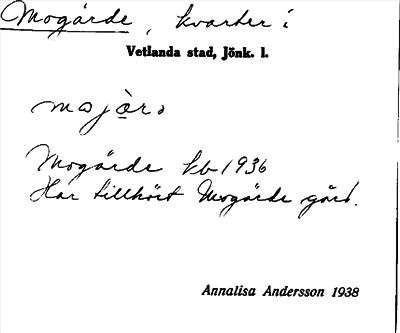 Mogärde, kvarter i
Vetlanda stad, Jönk. l.
Mogärde kb 1936
Har tillhört Mogärde gård.
Annalisa Andersson 1938